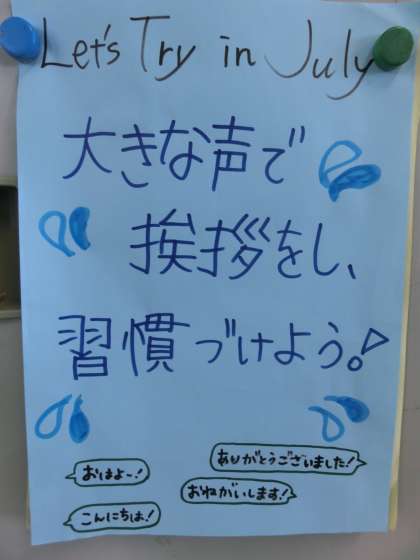 Let's Try in July
大きな声で
挨拶をし、
習慣づけよう!
おはよー!
ありがとうございました!
おねがいします!
こんにちは!